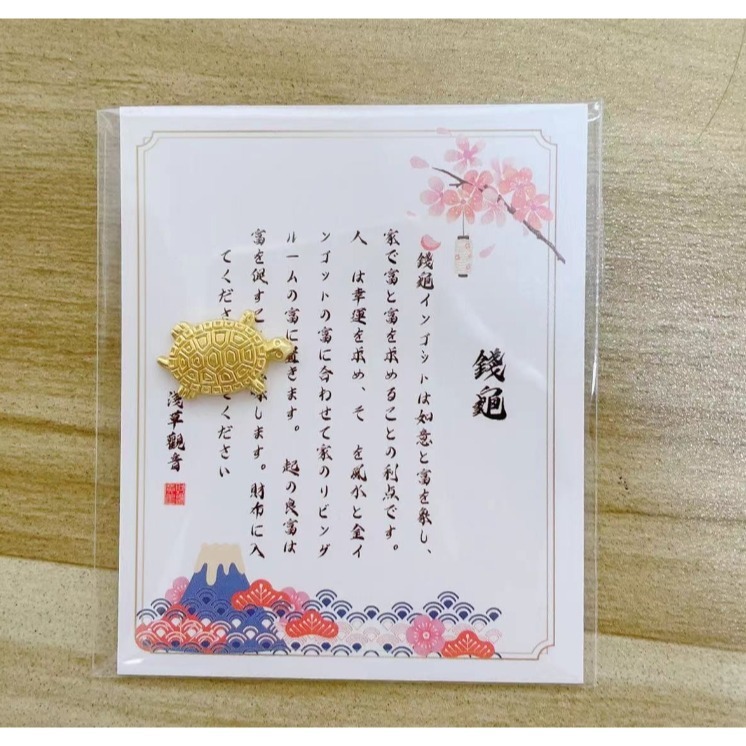 錢龜
錢龜インゴットは如意と富を象し、
家で富と富を求めることの利点です。
人 は幸運を求め、そ を風水と金イ
ンゴットの富に合わせて家のリビング
ルームの富に置きます。 起の良富は
富を促すこ します。財布に入
てくださ てください
淺草觀音